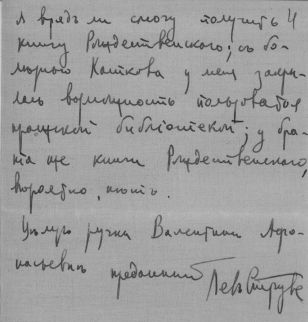 я врядъ ли смогу получить
книгу Рождественскаго; съ бо-
лѣзнью Каткова у меня закры-
лась возможность пользоваться
пражской библіотекой; у бра-
та же книги Рождественскаго,
вѣроятно, нѣтъ.
Цѣлую ручки Валентины Афа-
насьевны преданный
Левъ Струве